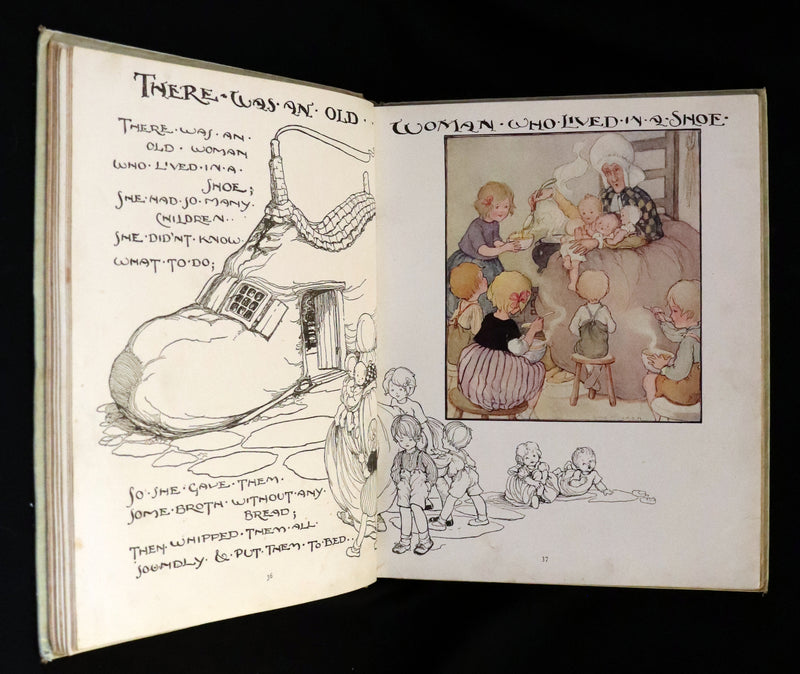 THERE · WAS · AN · OLD ·
WOMAN · WHO · LIVED · IN · A · SHOE ·
THERE · WAS · AN ·
OLD · WOMAN
WHO · LIVED · IN · A ·
SHOE;
SHE · HAD · SO · MANY ·
CHILDREN ··
SHE · DID'NT · KNOW
WHAT · TO · DO;
SO · SHE · GAVE · THEM ·
SOME · BROTH · WITHOUT · ANY ·
BREAD;
THEN · WHIPPED · THEM · ALL ·
SOUNDLY · & · PUT · THEM · TO · BED ·
36
37